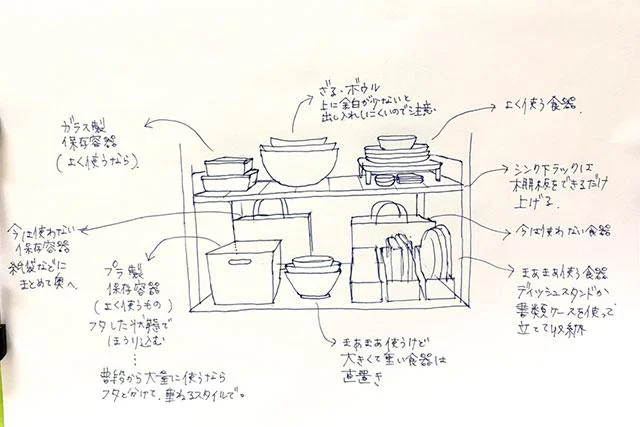 ざる・ボウル
上に余白が少ないと
出し入れしにくいので注意。
よく使う食器
ガラス製
保存容器
(よく使うなら)
シンク下ラックは
棚板をできるだけ
上げる。
今は使わない
保存容器
紙袋などに
まとめて奥へ。
今は使わない食器
プラ製
保存容器
(よく使うもの)
フタした状態で
ほうり込む
⋮
普段から大量に使うなら
フタとわけて、重ねるスタイルで。
まあまあ使う食器
ディッシュスタンドか
書類ケースを使って
立てて収納
まあまあ使うけど
大きくて重い食器は
直置き